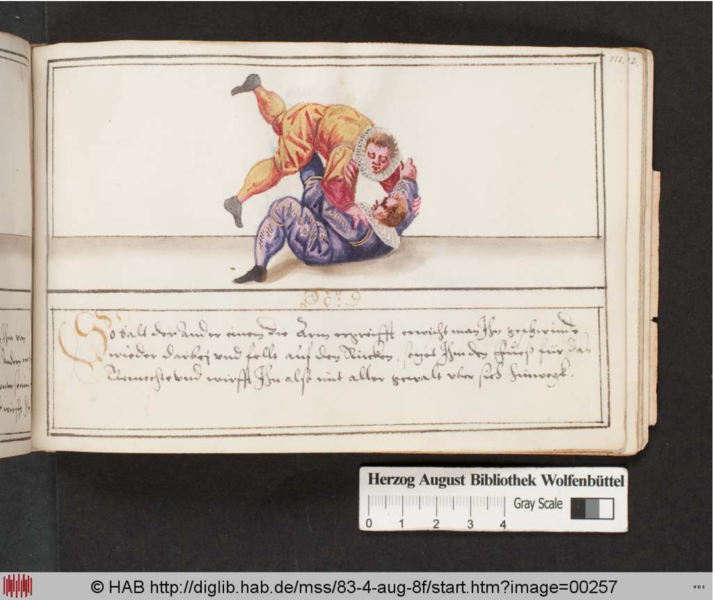 111. 2.
So balt der Ander einen die Arm ergreifft erwischt man Ihn geschwinde
wieder darbej vnd felt auf den Rücken, setzet Ihm den fueß für das
Gemechte vnd wirfft Ihn alß mit aller gewalt vber sich hinwegk.
Herzog August Bibliothek Wolfenbüttel
Gray Scale
0 1 2 3 4
© HAB http://diglib.hab.de/mss/83-4-aug-8f/start.htm?image=00257